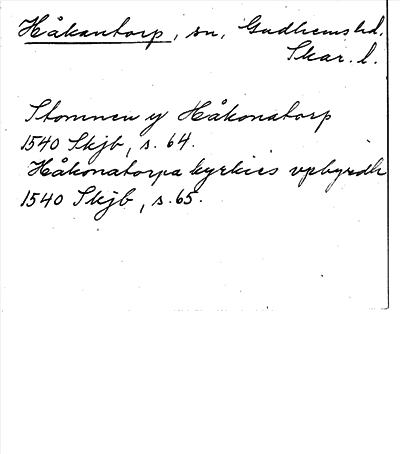 Håkantorp, sn, Gudhems hd,
Skar. l.
Stomnen y Håkonatorp
1540 Skjb, s. 64.
Håkonatorpa kyrkies vpbyrdh
1540 Skjb, s. 65.